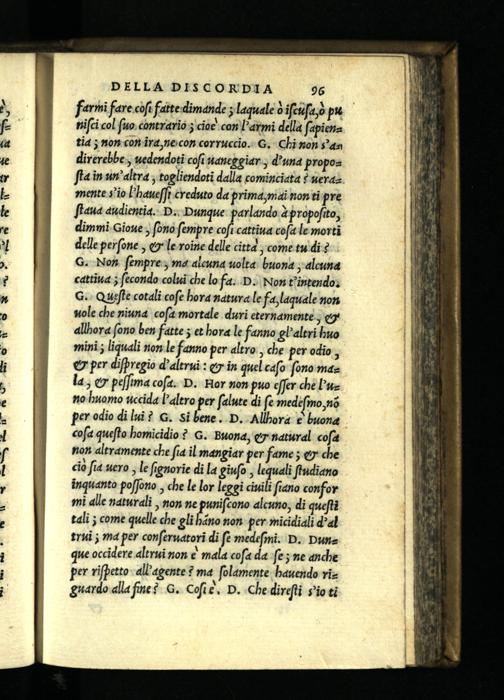 DELLA DISCORDIA 96
farmi fare cose fatte dimande; laquale ò iscusa, ò pu
nisci col suo contrario; cioè con l'armi della sapien=
tia; non con ira, ne con corruccio. G. Chi non s'a=
direrebbe, uedendoti cosi uaneggiar, d'una propo=
sta in un'altra, togliendoti dalla cominciata? uera=
mente s'io l'hauessi creduto da prima, mai non ti pre
staua audientia. D. Dunque parlando à proposito,
dimmi Gioue, sono sempre cosi cattiua cosa le morti
delle persone, & le roine delle città, come tu di?
G. Non sempre, ma alcuna uolta buona, alcuna
cattiua; secondo colui che lo fa. D. Non t'intendo.
G. Queste cotali cose hora natura le fa, laquale non
uole che niuna cosa mortale duri eternamente, &
allhora sono ben fatte; et hora le fanno gl'altri huo
mini; liquali non le fanno per altro, che per odio,
& per dispregio d'altrui: & in quel caso sono ma=
la, & pessima cosa. D. Hor non puo esser che l'u=
no huomo uccida l'altro per salute di se medesmo, nō
per odio di lui? G. Si bene. D. Allhora è buona
cosa questo homicidio? G. Buona, & natural cosa
non altramente che sia il mangiar per fame; & che
ciò sia uero, le signorie di la giuso, lequali studiano
inquanto possono, che le lor leggi ciuili siano confor
mi alle naturali, non ne puniscono alcuno, di questi
tali; come quelle che gli hāno non per micidiali d'al
trui; ma per conseruatori di se medesmi. D. Dun=
que occidere altrui non è mala cosa da se; ne anche
per rispetto all'agente? ma solamente hauendo ri=
guardo alla fine? G. Cosi è. D. Che diresti s'io ti